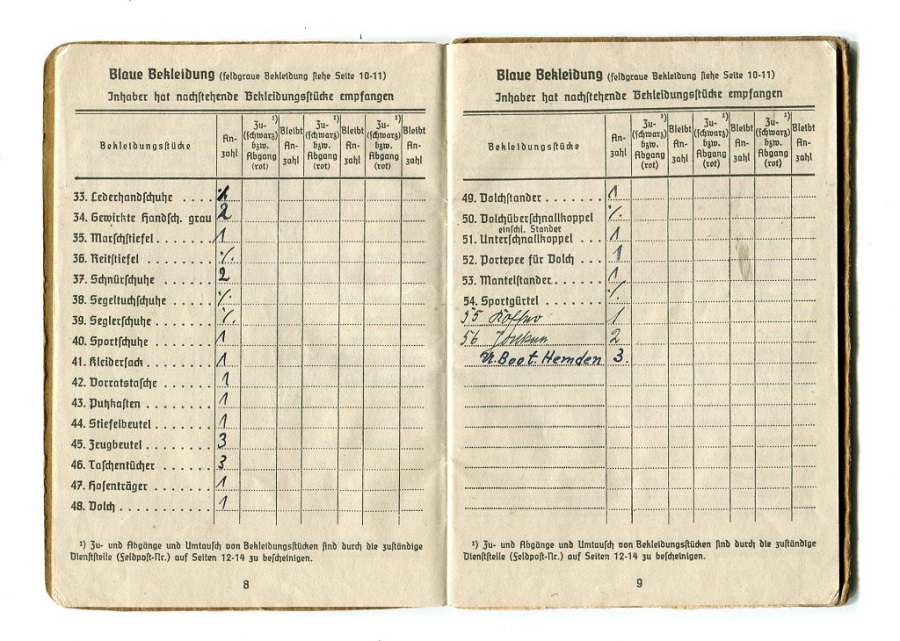 Blaue Bekleidung (feldgraue Bekleidung siehe Seite 10-11)
Inhaber hat nachstehende Bekleidungsstücke empfangen
Bekleidungsstücke An-zahl Zu-¹) (schwarz) bzw. Abgang (rot) Bleibt An-zahl Zu-¹) (schwarz) bzw. Abgang (rot) Bleibt An-zahl Zu-¹) (schwarz) bzw. Abgang (rot) Bleibt An-zahl
33. Lederhandschuhe ....
34. Gewirkte Handsch. grau 2
35. Marschstiefel....... 1
36. Reitstiefel ....... ·/.
37. Schnürschuhe ..... 2
38. Segeltuchschuhe .... ·/.
39. Seglerschuhe ...... ·/.
40. Sportschuhe ...... 1
41. Kleidersack....... 1
42. Vorratstasche ..... 1
43. Putzkasten ....... 1
44. Stiefelbeutel ...... 1
45. Zeugbeutel....... 3
46. Taschentücher ..... 3
47. Hosenträger ...... 1
48. Dolch.......... 1
¹) Zu- und Abgänge und Umtausch von Bekleidungsstücken sind durch die zuständige
Dienststelle (Feldpost-Nr.) auf Seiten 12-14 zu bescheinigen.
8
Blaue Bekleidung (feldgraue Bekleidung siehe Seite 10-11)
Inhaber hat nachstehende Bekleidungsstücke empfangen
Bekleidungsstücke An-zahl Zu-¹) (schwarz) bzw. Abgang (rot) Bleibt An-zahl Zu-¹) (schwarz) bzw. Abgang (rot) Bleibt An-zahl Zu-¹) (schwarz) bzw. Abgang (rot) Bleibt An-zahl
49. Dolchstander ...... 1
50. Dolchüberschnallkoppel ·/.
einschl. Stander
51. Unterschnallkoppel ... 1
52. Portepee für Dolch ... 1
53. Mantelstander...... 1
54. Sportgürtel ....... ·/.
55 Koffer 1
56 2
U.Boot.Hemden 3.
¹) Zu- und Abgänge und Umtausch von Bekleidungsstücken sind durch die zuständige
Dienststelle (Feldpost-Nr.) auf Seiten 12-14 zu bescheinigen.
9